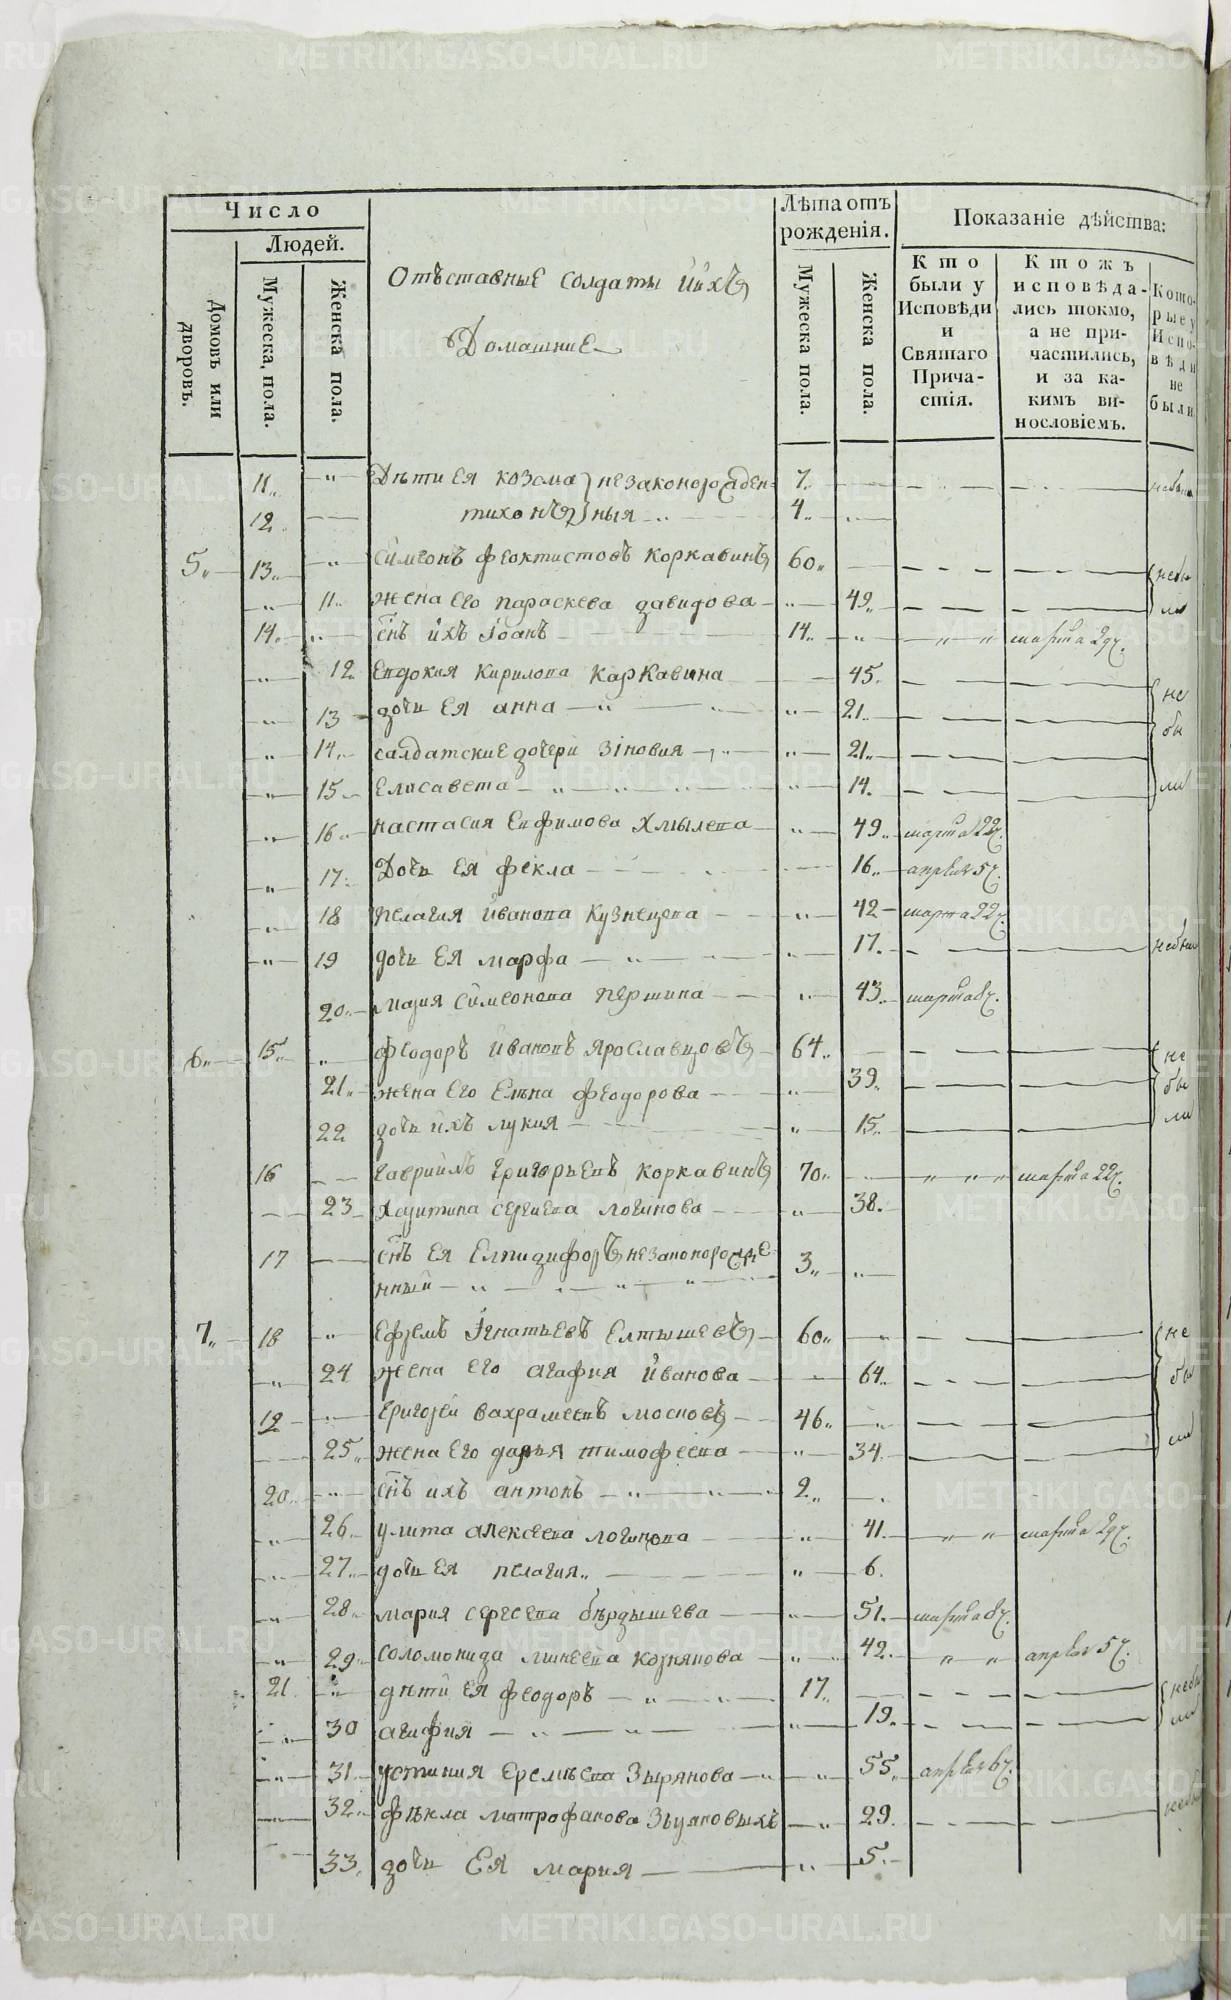 Число
Людей.
Домовъ или дворовъ.
Мужеска, пола.
Женска пола.
Отъставные солдаты ййхъ
Домашние
Лѣта отъ рожденія.
Мужеска пола.
Женска пола.
Показаніе дѣйства:
Кто были у Исповѣди и Святаго Причастія.
Ктожъ исповѣдались токмо, а не причастились, и за какимъ винословіемъ.
Которые у Исповѣди не были
11 „ Дѣти ея козма незаконорожден- 7
12 тихонъ ныя 4
5 13 „ Симеонъ феоктистовъ коркавинъ 60 небы
„ 11 жена его параскева давидова „ 49 ли
14 „ Снъ ихъ Iоанъ 14 „ „ „ марта 29ч.
„ 12 Евдокия кирилова каркавина 45 не
„ 13 дочь ея анна „ „ „ 21 бы
„ 14 салдатские дочери зiновия „ „ 21
„ 15 Елисавета „ „ 14 ли
„ 16 настасия Ефимова Хмылева „ 49 марта 22ч.
„ 17 Дочь ея фекла 16 апреля 5ч.
„ 18 пелагия Иванова кузнецова „ 42 марта 22ч.
„ 19 дочь ея марфа „ „ 17 небыли
20 мария Симеонова першина „ 43 марта 8ч.
6 15 „ феодоръ Ивановъ Ярославцовъ 64 не
21 жена его Елена феодорова „ 39 бы
22 дочь ихъ лукия „ 15 ли
16 гавриилъ григорьевъ коркавинъ 70 „ „ „ марта 22ч.
23 Харитина сергиева логинова „ 38
17 снъ ея Елпидифоръ незаконорожде
нный „ „ „ „ 3 „
7 18 „ Ефремъ Iгнатьевъ Елтышевъ 60 не
„ 24 жена его агафия Иванова 64 бы
19 григорей вахрамеевъ мосновъ 46 „
25 жена его дарья тимофеева „ 34 ли
20 „ снъ ихъ антонъ „ „ 2
„ 26 улита алексеева логинова „ 41 „ „ марта 29ч.
„ 27 дочь ея пелагия „ „ 6
„ 28 мария сергеева бердышева „ 51 марта 8ч.
„ 29 соломонида минеева кознякова „ 42 „ „ апреля 5ч.
21 „ дѣти ея феодоръ „ „ 17 небы
„ 30 агафия „ „ „ 19 ли
„ 31 устиния Еремеева Зырянова „ „ 55 апреля 6ч.
32 фекла митрофанова Зыряновыхъ „ 29 небы
33 дочь Ея мария „ 5
METRIKI.GASO-URAL.RU